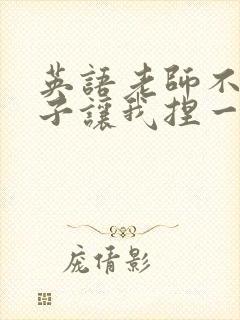 英語老師不
子讓我捏一
庞倩影